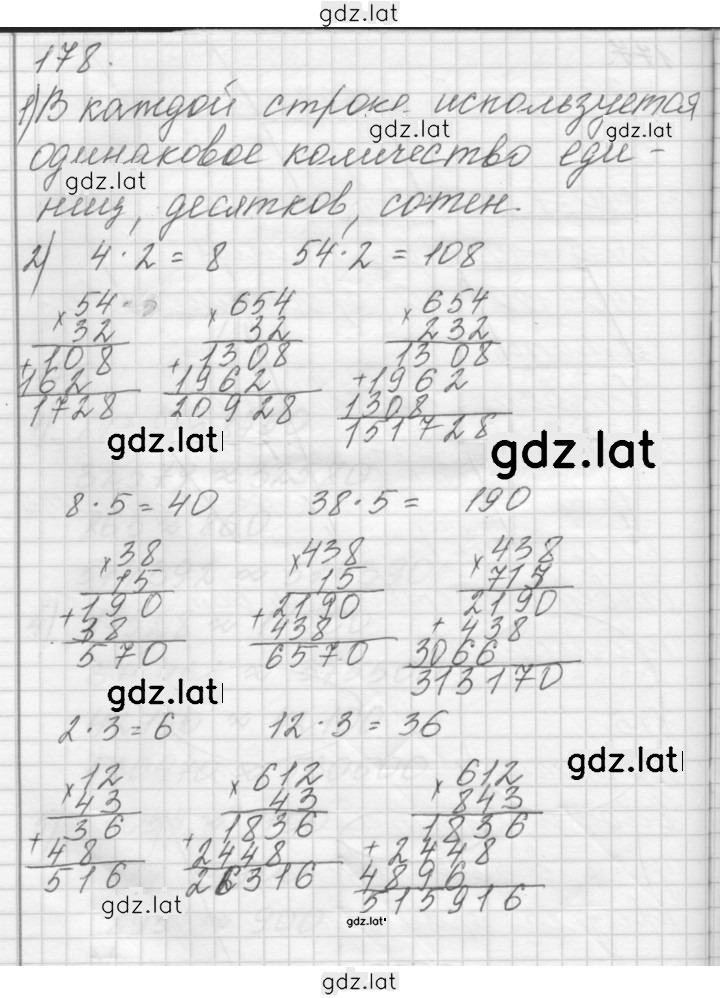 gdz.lat
178.
1) В каждой строке используется
gdz.lat
одинаковое количество еди-
gdz.lat
ниц, десятков, сотен.
2) 4 · 2 = 8 54 · 2 = 108
× 54 × 654 × 654
32 32 232
+ 108 + 1308 1308
162 1962 + 1962
1728 20928 1308
151728
gdz.lat gdz.lat
8 · 5 = 40 38 · 5 = 190
× 38 × 438 × 438
15 15 715
+ 190 + 2190 2190
38 438 + 438
570 6570 3066
313170
gdz.lat
2 · 3 = 6 12 · 3 = 36
gdz.lat
× 12 × 612 × 612
43 43 843
36 1836 1836
+ 48 + 2448 + 2448
516 26316 4896
515916
gdz.lat gdz.lat
gdz.lat